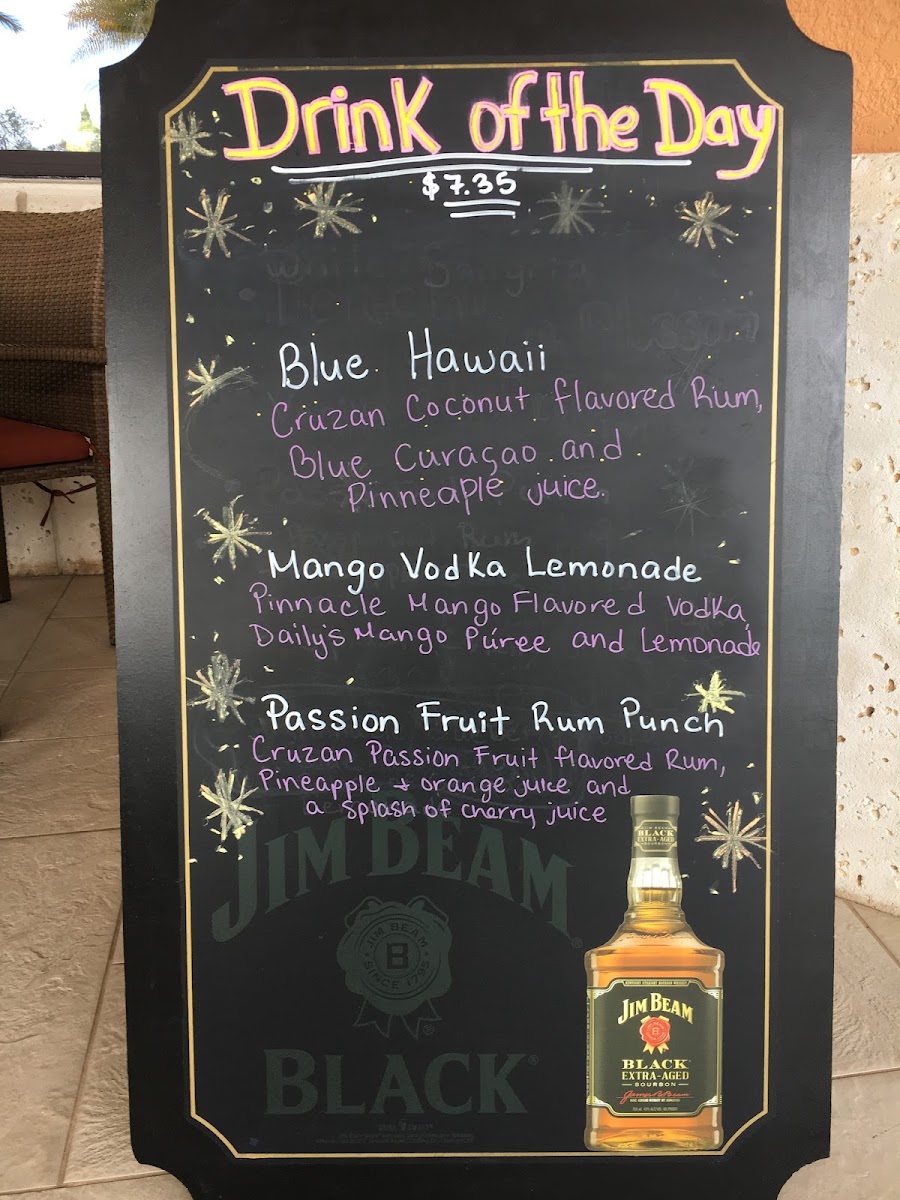 Drink of the Day
$7.35
Blue Hawaii
Cruzan Coconut flavored Rum,
Blue Curaçao and
Pinneaple juice.
Mango Vodka Lemonade
Pinnacle Mango Flavored Vodka,
Daily's Mango Púree and Lemonade
Passion Fruit Rum Punch
Cruzan Passion Fruit flavored Rum,
Pineapple + orange juice and
a splash of cherry juice
JIM BEAM
JIM BEAM
B
SINCE 1795
BLACK
BLACK
EXTRA-AGED
JIM BEAM
BLACK
EXTRA-AGED
BOURBON